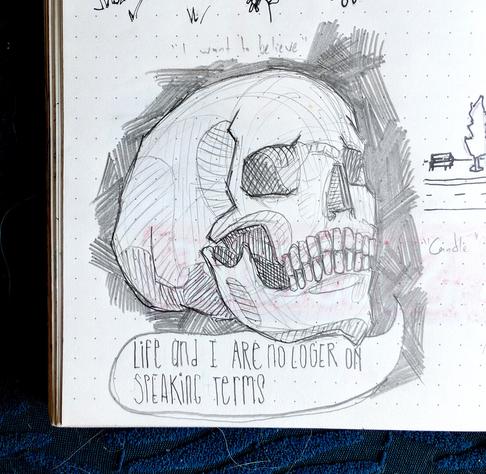 "I want to believe"
"Candle"
LIFE and I ARE no LOGER ON
SPEAKING TERMS